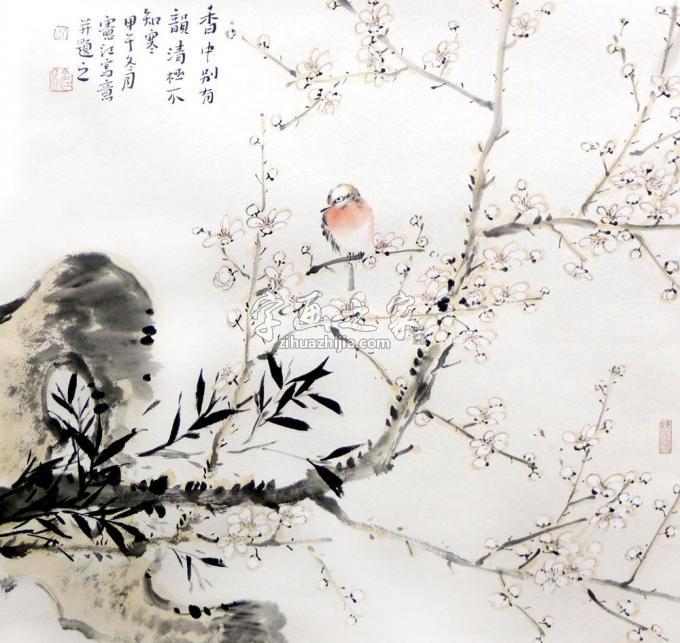 香中别有
韻清極不
知寒
甲午冬月
憲江写意
并題之
字画之家
zihuazhijia.com